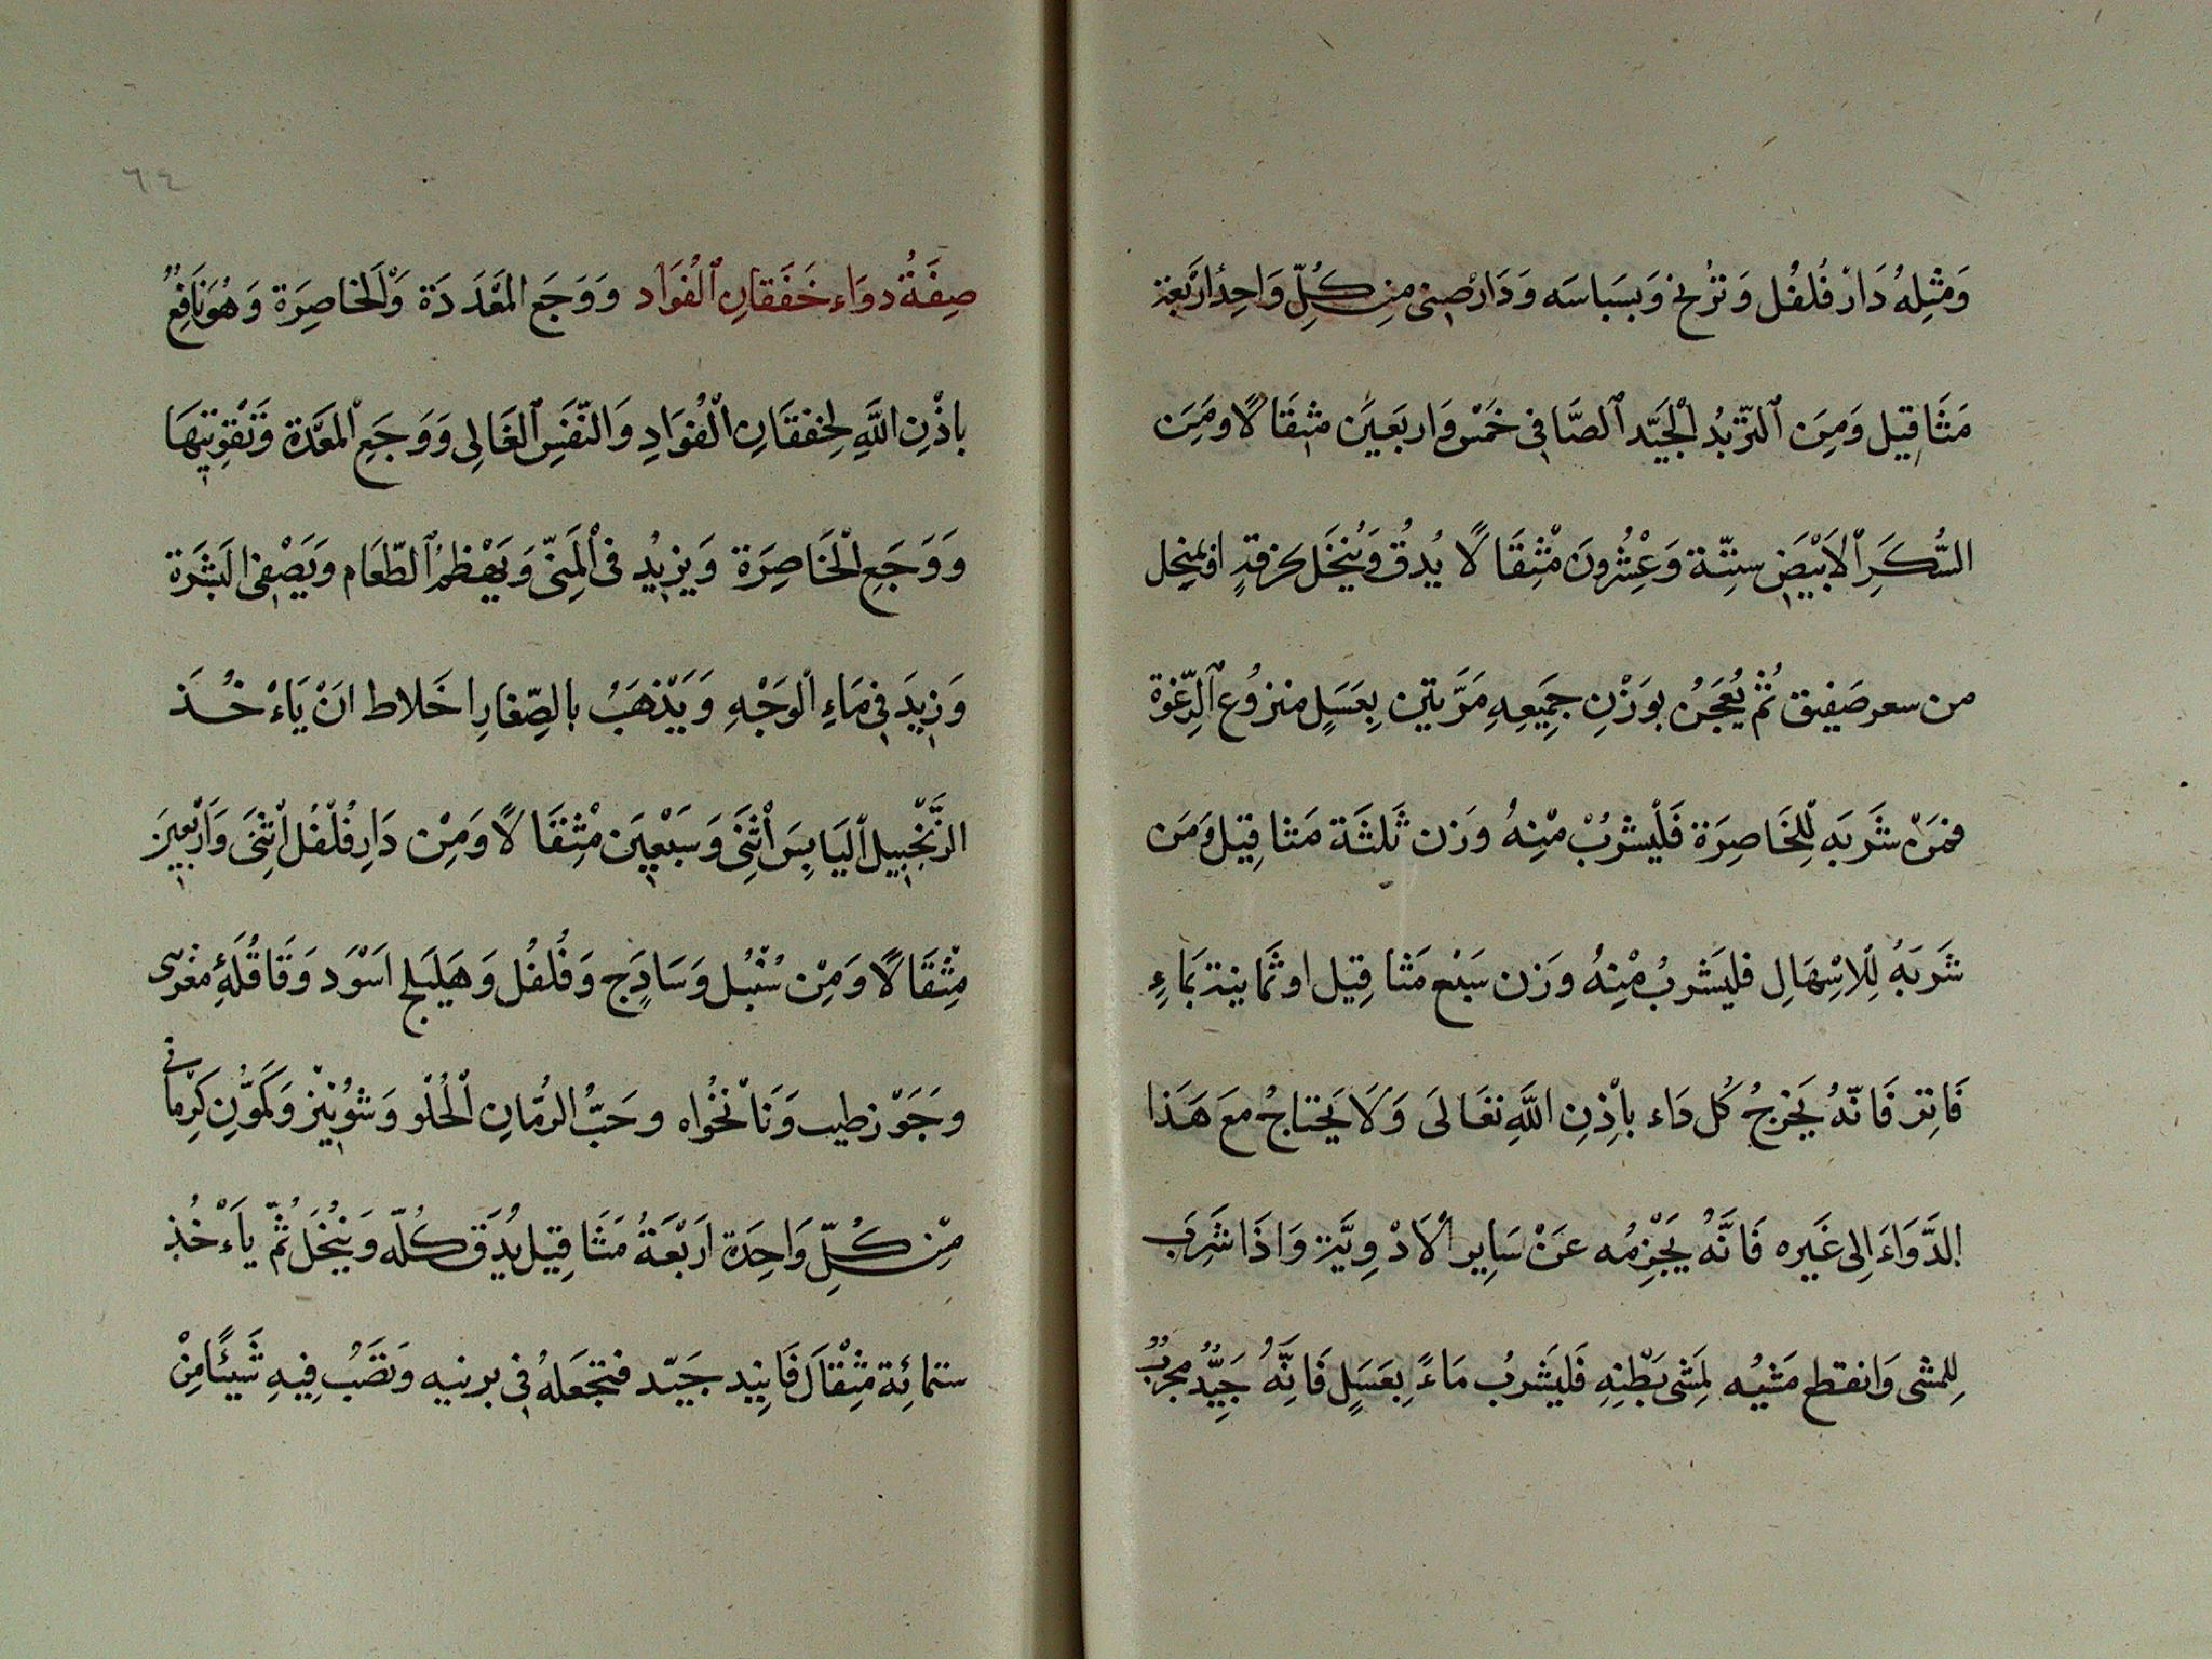 وَمِثْلِهُ دَارْ فُلفُل وَنرُنج وَبسَباسَه وَدَارْصِينى مِن كُلِّ وَاحِدٍ اَرْبَعَة
مَثَاقِيل وَمِنَ ٱلتّربُد ٱلْجَيّد ٱلصَّافِى خَمْس وَاربَعِينَ مثِقَالًا وَمِنَ
السُّكَرِ ٱلاَبْيَضِ سِتِّة وَعْشِرُونَ مْثِقَالًا يُدقُ وَيُنخَل بخرقةٍ او بمنِخل
من سعر صَفِيق ثُمْ يُعجَنُ بوَزْنِ جَمِيعِهِ مَرَّتين بِعَسَلٍ منزوُع ٱلرِّغوَة
فمَنْ شَرَبَه لِلْخَاصِرَة فَلْيشرُبْ مْنِهُ وَزن ثَلثَة مَثاقِيل وَمَن
شَرَبَهُ لِلْاسِهَالِ فليَشربُ مْنِهُ وَزن سَبْع مَثاقِيل او ثَمانية بمَاءٍ
فَاتِر فَانّهُ يَخرجُ كُل دَاء باِذِنِ اللَّهِ تعَالَى وَلَا يَحتاجُ معَ هَذا
الدَّوَاءَ اِلى غَيره فَانَّهُ يَجْزِمُه عَنْ سَاِير ٱلاَدْوِيَّة وَاذَا شَرَبَ
لِلمشى وَانقطع مَشيُه لِمَشى بَطْنِهِ فَليَشربُ مَاءً بِعَسَلٍ فَانِّهُ جَيِّدٌ مجربٌ
صِفَةُ دوَاء خَفَقانِ ٱلفُوَاد وَوَجَع المَعْدَدَة وَٱلخاصِرَة وَهُوَ نَافِعٌ
باِذْنِ اللَّهِ لِخفقَانِ ٱلْفُوَادِ وَالنَّفَسِ ٱلعَالِى وَوَجَعِ ٱلمعَّدَة وَتَقْوِيتِهَا
وَوَجَعِ ٱلْخَاصِرَة وَيزيُد فى ٱلمَنِىّ وَيَهْظم ٱلطّعَام وَيَصْفِى البَشَرَة
وَزِيَد فِى مَاءِ ٱلوَجْهِ وَيَذْهَبُ بالصِّفارِ اخَلاط انَ يَاءْخُذَ
الزَّنْجَبِيل ٱليَابِسَ اثْنَىِ وَسَبْعِينَ مْثِقَالًا وَمِنْ دَارِفُلْفُل اثْنِىَ وَاَرْبَعِينَ
مِثْقَالًا وَمِنْ سُنْبُل وَسَادِج وَفُلفُل وَهَيلَيلج اسَوْد وَقَاقُلَة مغربى
وجَوّزطيب وَنَانْخُواه وحَبُّ الرُمّانِ ٱلْحُلْو وَشوُنِيْز وَكَمّوُنِ كَرِمْانى
مِنْ كُلِّ وَاحِدَة اَرَبْعَةُ مَثَاقِيل يُدَقُ كُلّه وَيُنخَل ثُمّ يَاءْخُذ
ستمائِة مثِقْالَ فَانِيد جَيّد فتجعَلهُ فِى برنيه وَتصَبُ فِيهِ شَيئًا مِنْ
٦٤